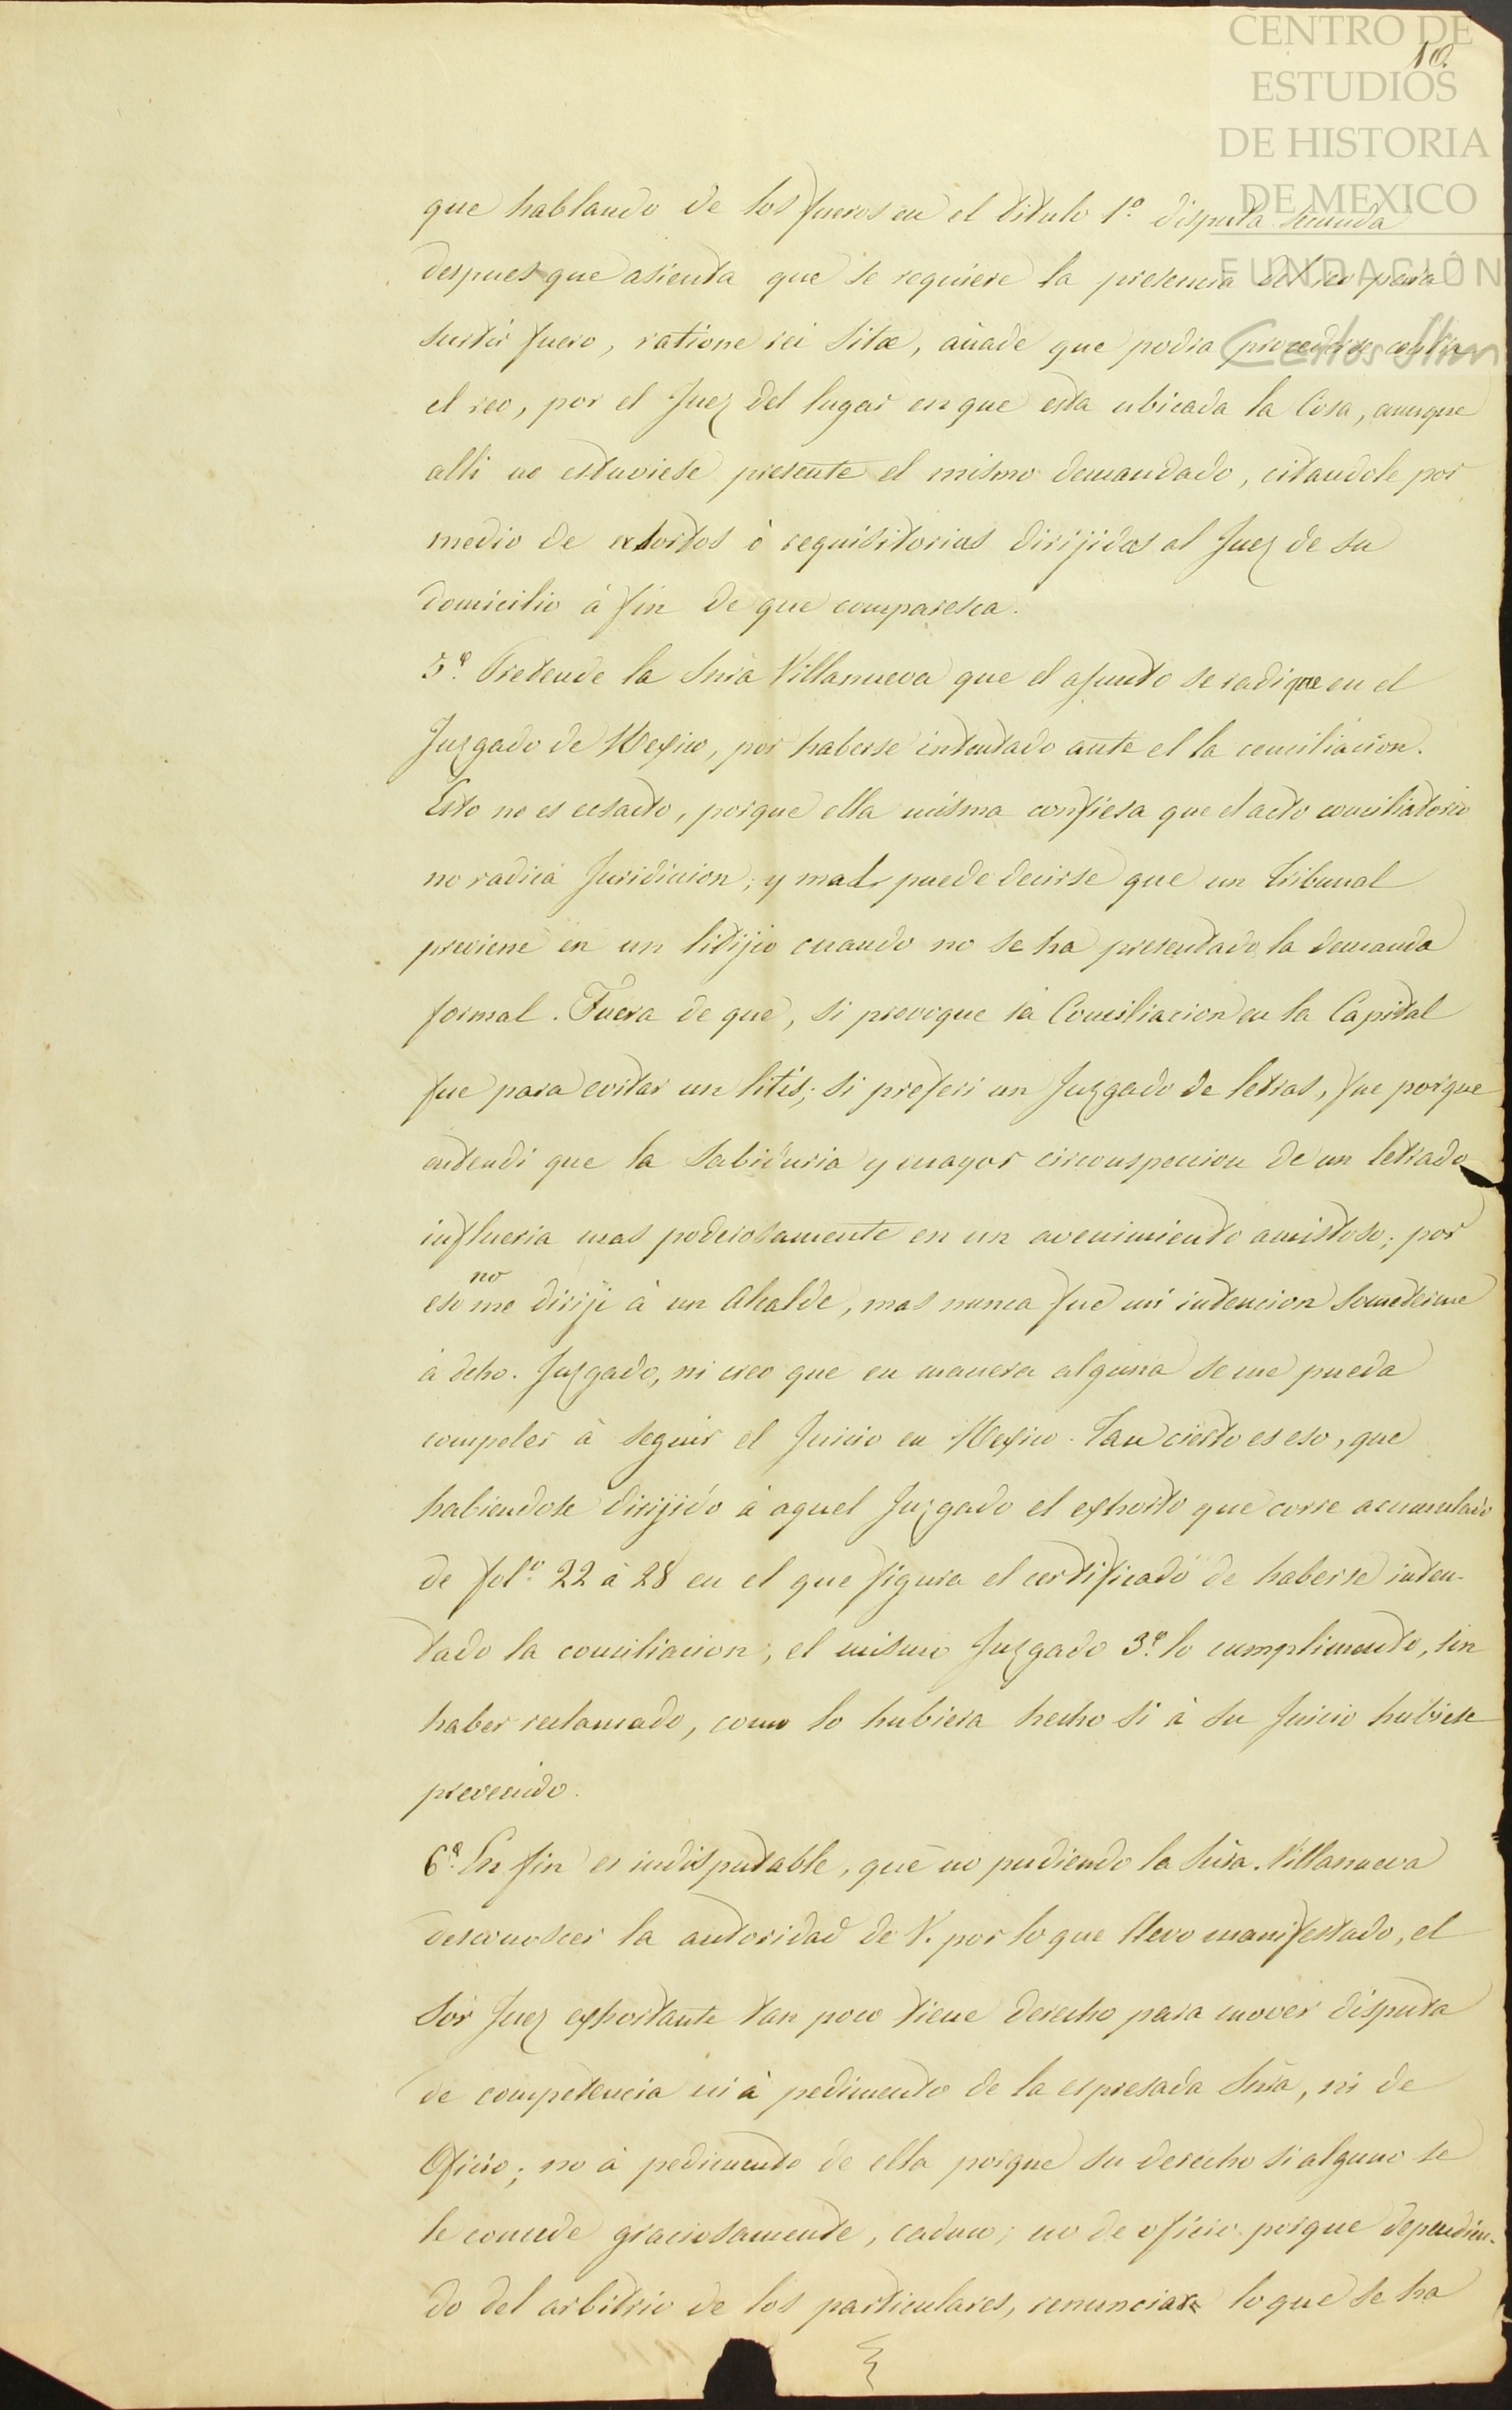 CENTRO DE
10.
ESTUDIOS
DE HISTORIA
DE MEXICO
FUNDACIÓN
Carlos Slim
que hablando de los fueros en el titulo 1º disputa secunda
despues que asienta que se requiere la presencia del reo para
surtir fuero, ratione rei sitæ, añade que podra procederse contra
el reo, por el Juez del lugar en que esta ubicada la Cosa, aunque
alli no estuviese presente el mismo demandado, citandole por
medio de exhortos ò requisitorias dirijidas al Juez de su
domicilio à fin de que comparesca.
5ª. Pretende la Snra Villanueva que el asunto se radique en el
Juzgado de Mexico, por haberse intentado ante el la conciliacion.
Esto no es ecsacto, porque ella misma confiesa que el acto conciliatorio
no radica Juridicion; y mal puede decirse que un tribunal
previene en un litijio cuando no se ha presentado la demanda
formal. Fuera de que, si provoque la Conciliacion en la Capital
fue para evitar un litis; si preferi un Juzgado de letras, fue porque
entendi que la sabiduria y mayor circonspeccion de un letrado
influeria mas poderosamente en un avenimiento amistoso; por
eso no me diriji à un Alcalde, mas nunca fue mi intencion someterme
à dcho. Juzgado, ni creo que en manera alguna se me pueda
compeler à seguir el Juicio en Mexico. Tan cierto es eso, que
habiendose dirijido à aquel Juzgado el exhorto que corre acumulado
de folº 22 à 28 en el que figura el certificado de haberse inten-
tado la conciliacion; el mismo Juzgado 3º lo cumplimento, sin
haber reclamado, como lo hubiera hecho si à su Juicio hubiese
prevenido.
6ª. En fin es indisputable, que no pudiendo la Snra. Villanueva
desconoscer la autoridad de V. por lo que llevo manifestado, el
Sor Juez exhortante tan poco tiene derecho para mover disputa
de competencia ni à pedimento de la espresada Snra, ni de
Oficio; no à pedimento de ella porque su derecho si alguno se
le concede graciosamente, caduco; no de oficio porque dependien-
do del arbitrio de los particulares, renunciar lo que se ha